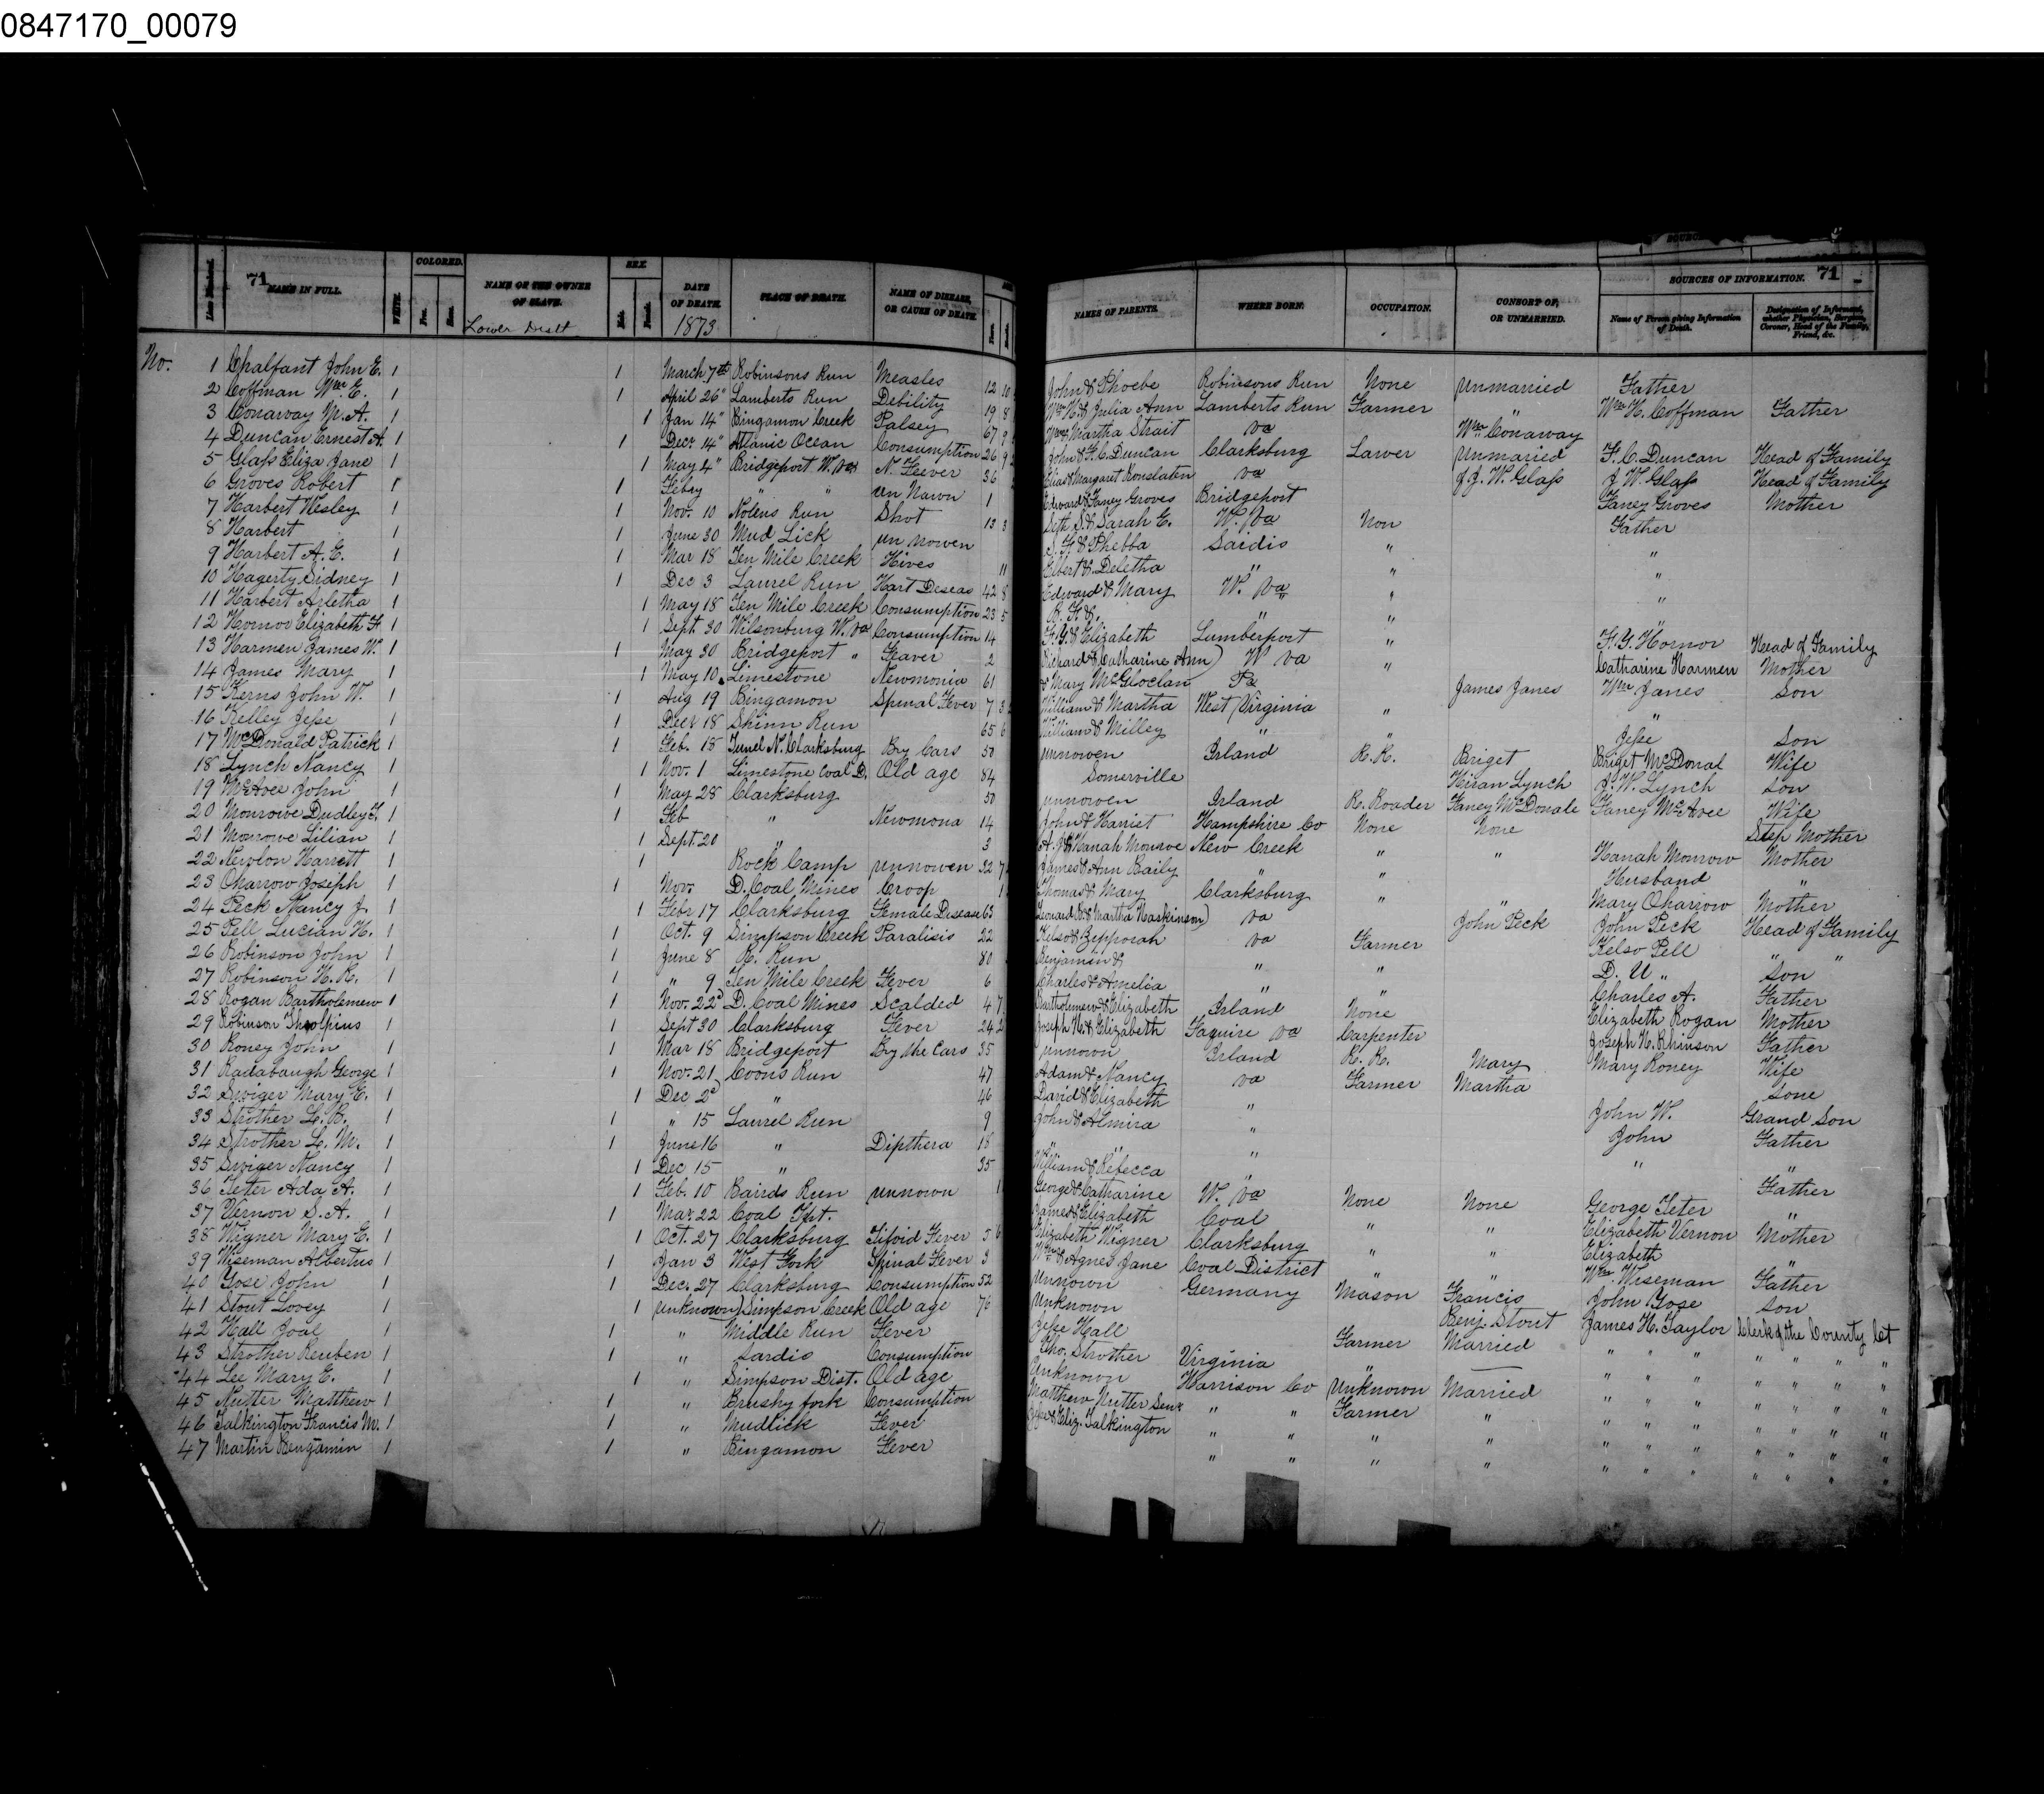 0847170_00079
71 NAME IN FULL. WHITE. COLORED. Free. Slave. NAME OF THE OWNER OF SLAVE. SEX. Male. Female. DATE OF DEATH. PLACE OF DEATH. NAME OF DISEASE, OR CAUSE OF DEATH. Years. NAMES OF PARENTS. WHERE BORN. OCCUPATION. CONSORT OF, OR UNMARRIED. SOURCES OF INFORMATION. 71
Name of Person giving Information of Death. Designation of Informant, whether Physician, Surgeon, Coroner, Head of the Family, Friend, &c.
Lower Distt 1873
No. 1 Chalfant John E. 1 1 March 7th Robinsons Run Measles 12 10 John & Phoebe Robinsons Run None unmarried Father
2 Coffman Wm E. 1 1 April 26" Lamberts Run Debility 19 8 Wm H. & Julia Ann Lamberts Run Farmer " Wm H. Coffman Father
3 Conaway M. A. 1 1 Jan 14" Bingamon Creek Palsey 67 9 Wm & Martha Strait Va Wm Conaway
4 Duncan Ernest A. 1 1 Decr 14" Atlanic Ocean Consumption 26 9 John & F. C. Duncan Clarksburg Lawer unmaried F. C. Duncan Head of Family
5 Glass Eliza Jane 1 1 May 4" Bridgeport W. Va N. Feever 36 Elias & Margaret Va of J. W. Glass J W. Glass Head of Family
6 Groves Robert 1 1 Febry " " un Nawn 1 Edward & Faney Groves Bridgeport Faney Groves Mother
7 Harbert Wesley 1 1 Nov. 10 Nolens Run Shot 13 3 Seth S. & Sarah E. W. Va Non Father
8 Harbert 1 1 June 30 Mud Lick un nowen S. F. & Phebba Saidis " "
9 Harbert A. E. 1 1 Mar 18 Ten Mile Creek Hives 11 Elbert & Deletha " " "
10 Hagerty Sidney 1 1 Dec 3 Laurel Run Hart Deseas 42 8 Edward & Mary W. Va " "
11 Harbert Arletha 1 1 May 18 Ten Mile Creek Consumption 23 5 B. F. & " " "
12 Hornor Elizabeth F. 1 1 Sept 30 Wilsonburg W. Va Consumption 14 F. Y. & Elizabeth Lumberport " F. Y. Hornor Head of Family
13 Harmen James W. 1 1 May 30 Bridgeport " Feaver 2 Richard & Catharine Ann) W Va " Catharine Harmen Mother
14 James Mary 1 1 May 10 Limestone Newmonia 61 & Mary Pa James Janes Wm Janes Son
15 Kerns John W. 1 1 Aug 19 Bingamon Spinal Fever 7 3 William & Martha West Virginia " "
16 Kelley Jesse 1 1 Decr 18 Shinn Run 65 6 William & Milley " " Jesse Son
17 McDonald Patrick 1 1 Feb. 15 Tunel N. Clarksburg By Cars 50 unnowen Irland R. R. Briget Briget McDonal Wife
18 Lynch Nancy 1 1 Nov. 1 Limestone Coal D. Old age 84 Somerville Hiran Lynch J. W. Lynch Son
19 McAvee John 1 1 May 28 Clarksburg 50 unnowen Irland R. Roader Faney McDonale Faney McAvee Wife
20 Monrowe Dudley T. 1 1 Feb " Newmona 14 John & Harriet Hampshire Co None None Step Mother
21 Monrowe Lilian 1 1 Sept. 20 " 3 A. J. & Hanah Monroe New Creek " " Hanah Monrow Mother
22 Newlon Harrett 1 1 Rock Camp unnowen 32 7 James & Ann Baily " " Husband "
23 Oharrow Joseph 1 1 Nov. D. Coal Mines Croop 1 Thomas & Mary Clarksburg " " Mary Oharrow Mother
24 Peck Nancy J. 1 1 Febr 17 Clarksburg Female Disease 63 Leonard R. & Martha Haskinson) Va John Peck John Peck Head of Family
25 Pell Lucian H. 1 1 Oct. 9 Simpson Creek Paralisis 22 Kelso & Zipporah Va Farmer Kelso Pell " "
26 Robinson John 1 1 June 8 R. Run 80 Benjamin & " " D. U " Son
27 Robinson H. R. 1 1 " 9 Ten Mile Creek Fever 6 Charles & Amelia " " Charles A. Father
28 Rogan Bartholemew 1 1 Nov. 22d D. Coal Mines Scalded 4 7 Bartholemew & Elizabeth Irland None Elizabeth Rogan Mother
29 Robinson 1 1 Sept 30 Clarksburg Fever 24 2 Joseph H. & Elizabeth Faquire Va Carpenter Joseph H. Father
30 Roney John 1 1 Mar 18 Bridgeport By the Cars 35 unnown Irland R. R. Mary Mary Roney Wife
31 Radabaugh George 1 1 Nov. 21 Coons Run 47 Adam & Nancy Va Farmer Martha Sone
32 Swiger Mary E. 1 1 Dec 2d " 46 David & Elizabeth " John W. Grand Son
33 Strother L. B. 1 1 " 15 Laurel Run 9 John & Almira " John Father
34 Strother L. M. 1 1 June 16 " Dipthera 18 " " " " "
35 Swiger Nancy 1 1 Dec 15 " 35 William & Rebecca " Father
36 Teter Ada A. 1 1 Feb. 10 Bairds Run unnown 1 George & Catharine W. Va None None George Teter "
37 Vernon S. A. 1 1 Mar 22 Coal James & Elizabeth Coal " " Elizabeth Vernon Mother
38 Wigner Mary E. 1 1 Oct. 27 Clarksburg Tifoid Fever 5 6 Elizabeth Wigner Clarksburg " " Elizabeth "
39 Wiseman Albertus 1 1 Jan 3 West Fork Spinal Fever 3 Wm & Agnes Jane Coal District " " Wm. Wiseman Father
40 Yose John 1 1 Dec. 27 Clarksburg Consumption 52 Unnown Germany Mason Francis John Yose Son
41 Stout Lovey 1 1 unknown) Simpson Creek Old age 76 Unknown Benj. Stout James H. Taylor Clerk of the County Cot
42 Hall Joal 1 1 " Middle Run Fever Jesse Hall Farmer Married " " " " " " "
43 Strother Reuben 1 1 " Sardis Consumption Tho. Strother Virginia " " " " " " " "
44 Lee Mary E. 1 1 " Simpson Dist. Old age Unknown Harrison Co Unknown Married " " " " " " "
45 Nutter Matthew 1 1 " Brushy fork Consumption Matthew Nutter Senr " " Farmer " " " " " " " "
46 Talkington Francis M. 1 1 " Mudlick Fever Jesse & Eliz. Talkington " " " " " " " " " " "
47 Martin Benjamin 1 1 " Bingamon Fever " " " " " " " " " " "